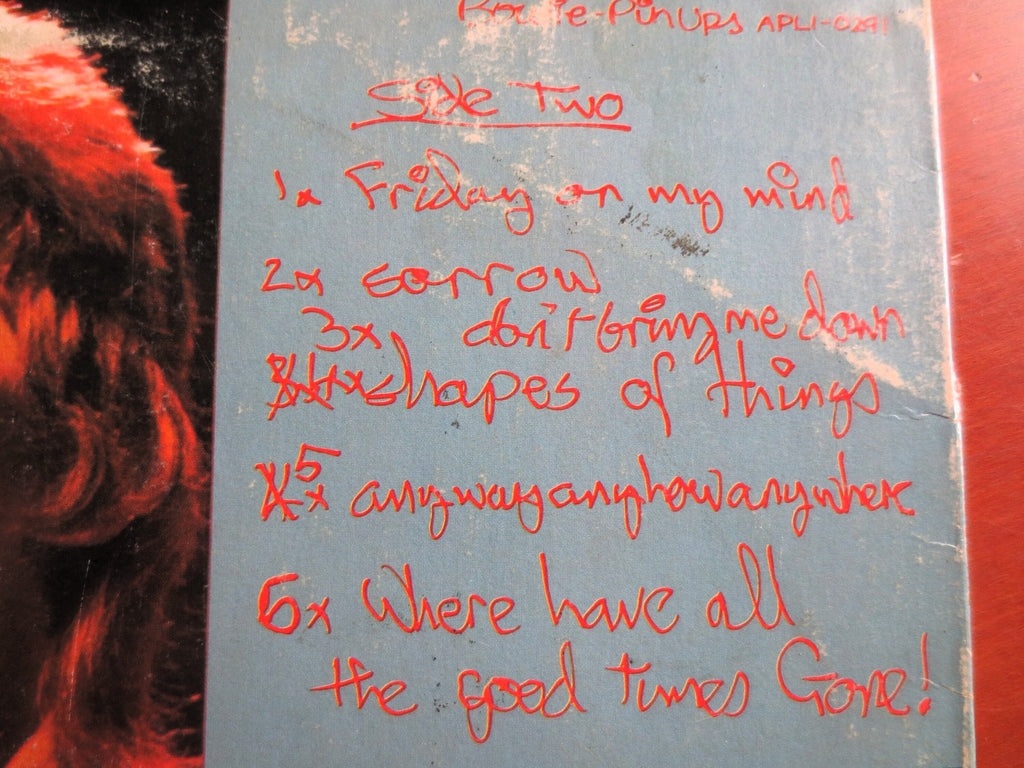 Bowie-PinUps APL1-0291
Side Two
1x Friday on my mind
2x sorrow
3x don't bring me down
4x shapes of things
5x anywayanyhowanywhere
6x Where have all
the good times Gone!